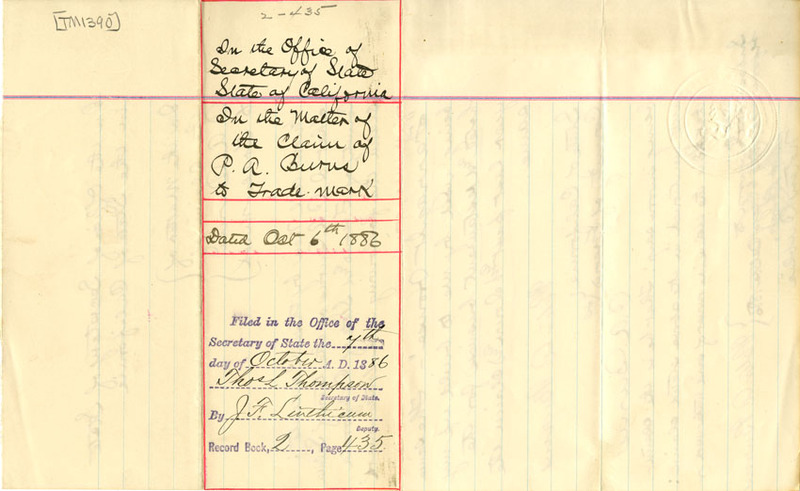 [TM1390]
2-435
In the Office of
Secretary of State
State of California
In the Matter of
the Claim of
P. A. Burns
to Trade-mark
Dated Oct 6th 1886
Filed in the Office of the
Secretary of State the 7th
day of October A. D. 1886
Thos L. Thompson
Secretary of State.
By J. F. Linthicum
Deputy.
Record Book, 2, Page 435